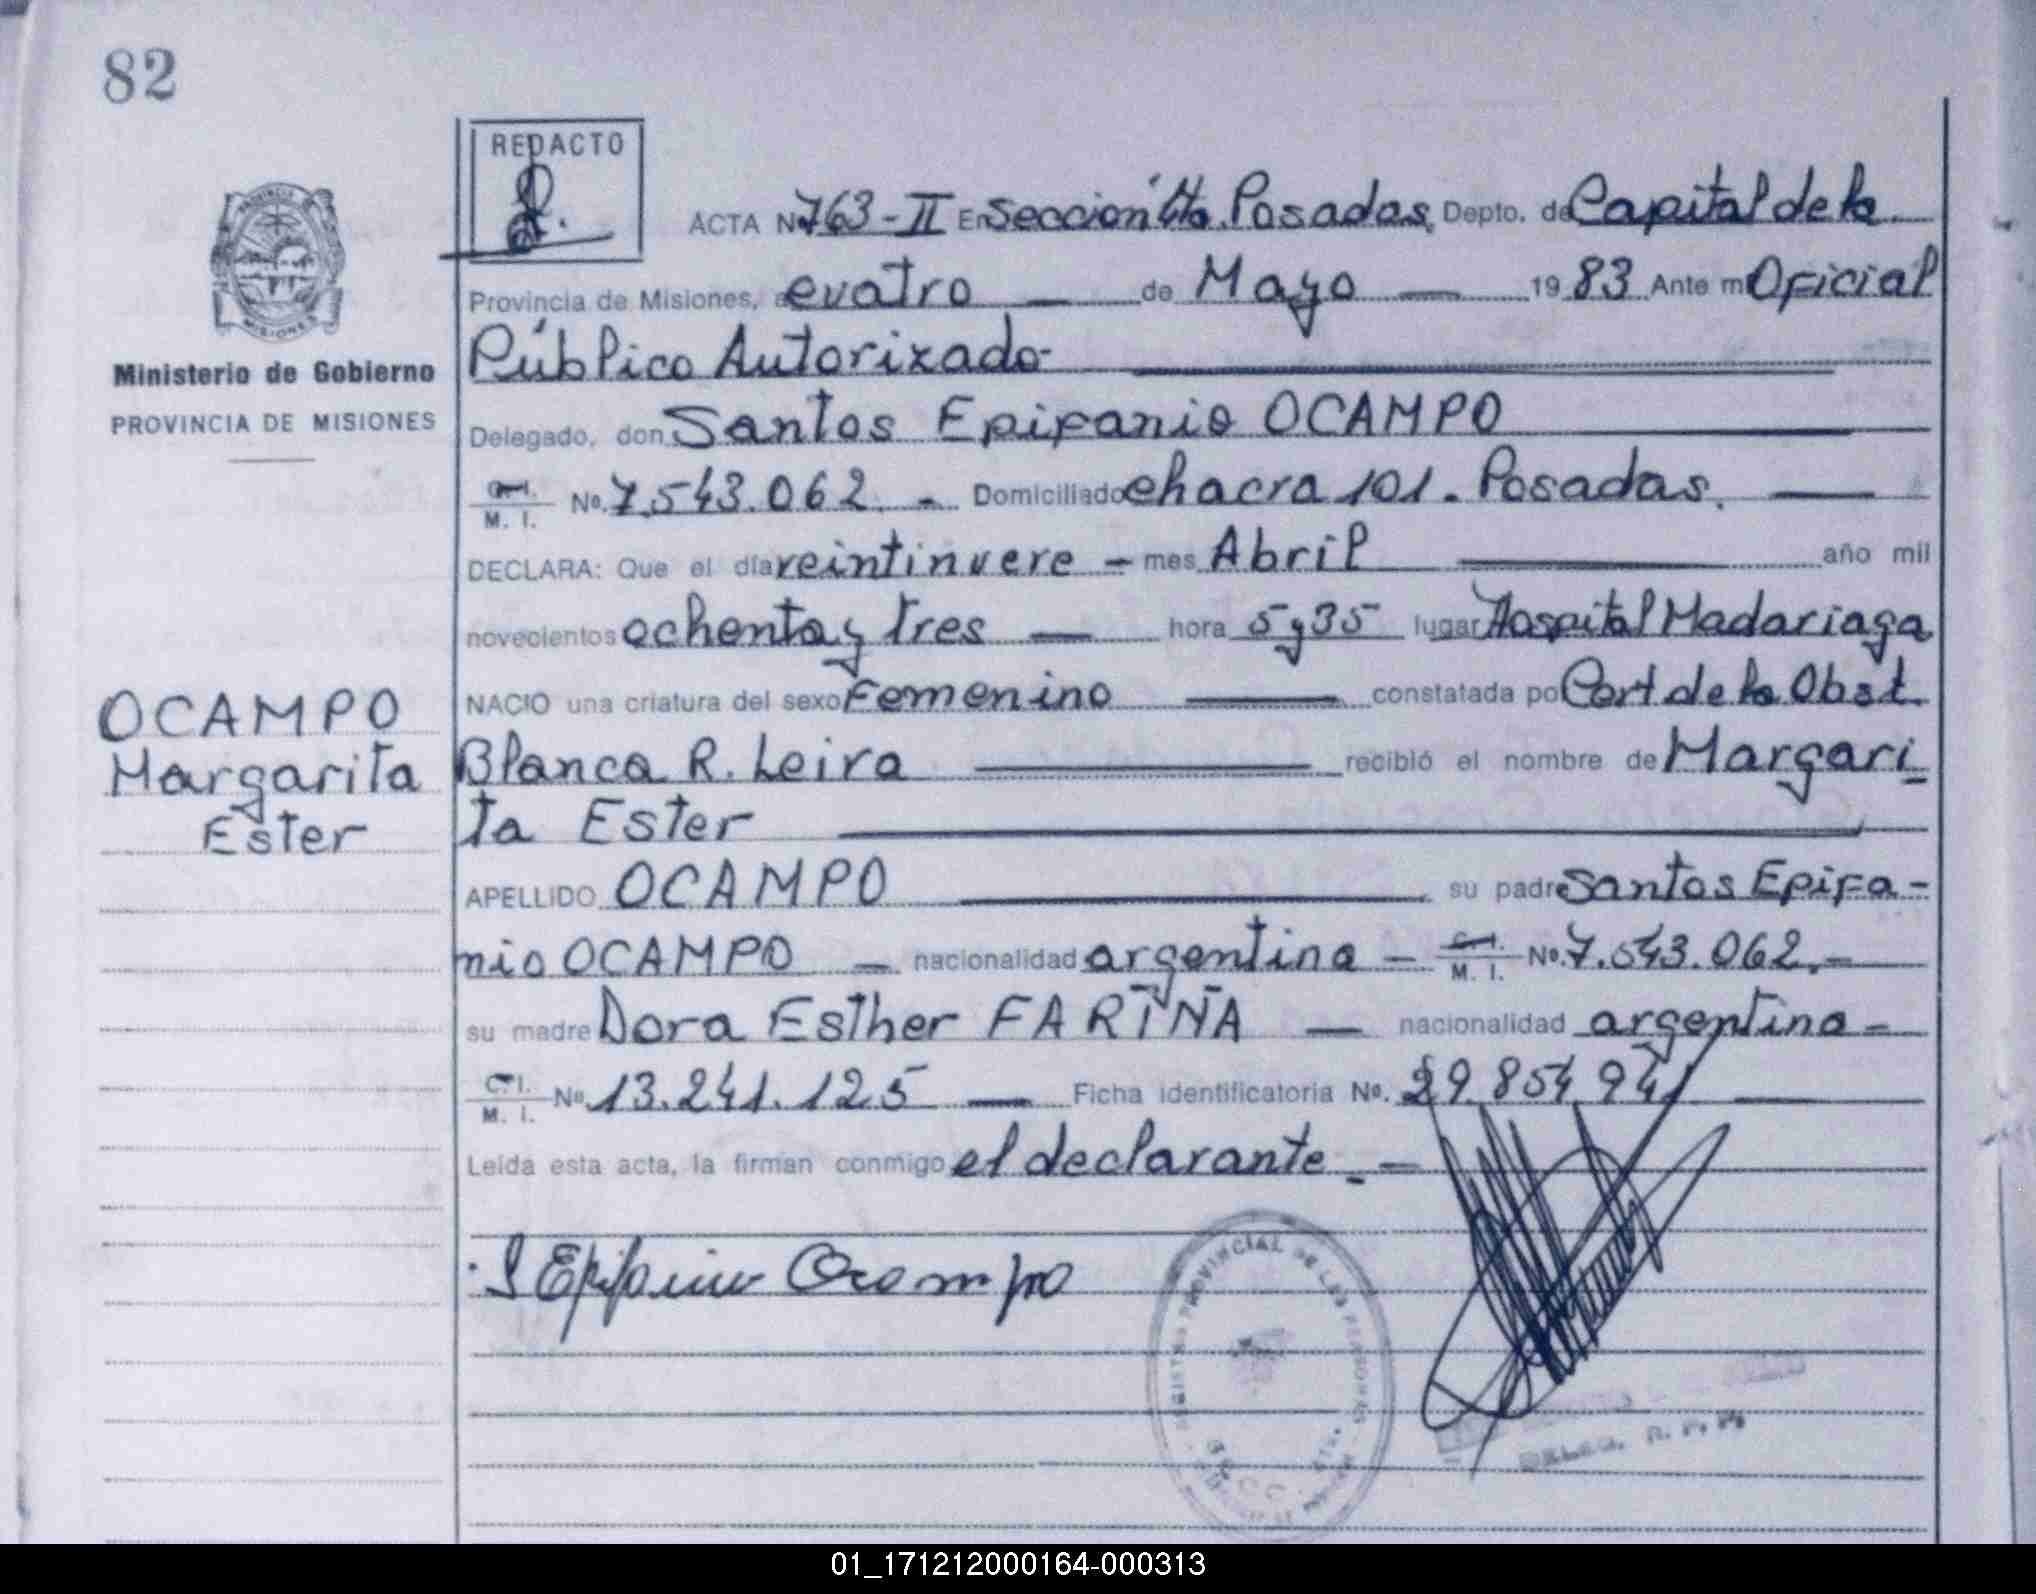 82
REDACTO
ACTA Nº 763-II En Sección 4ta. Posadas, Depto. de Capital de la
Provincia de Misiones, a cuatro — de Mayo — 1983 Ante mi Oficial
Público Autorizado
Ministerio de Gobierno
PROVINCIA DE MISIONES
Delegado, don Santos Epifanio OCAMPO
C. I. M. I. No. 7.543.062. - Domiciliado chacra 101. Posadas.
DECLARA: Que el día veintinueve - mes Abril año mil
novecientos ochenta y tres — hora 5 y 35 lugar Hospital Madariaga
NACIO una criatura del sexo Femenino constatada po Cert de la Obst.
OCAMPO
Margarita
Ester
Blanca R. Leira recibió el nombre de Margari-
ta Ester
APELLIDO OCAMPO su padre Santos Epifa-
nio OCAMPO — nacionalidad argentina - C. I. M. I. No. 7.543.062.-
su madre Dora Esther FARIÑA — nacionalidad argentina -
C. I. M. I. No. 13.241.125 — Ficha identificatoria No. 29.854.941
Leída esta acta, la firman conmigo el declarante. -
S Epifanio Ocampo
PROVINCIAL DE LAS PERSONAS
DELEG. R. P. P.
01_171212000164-000313